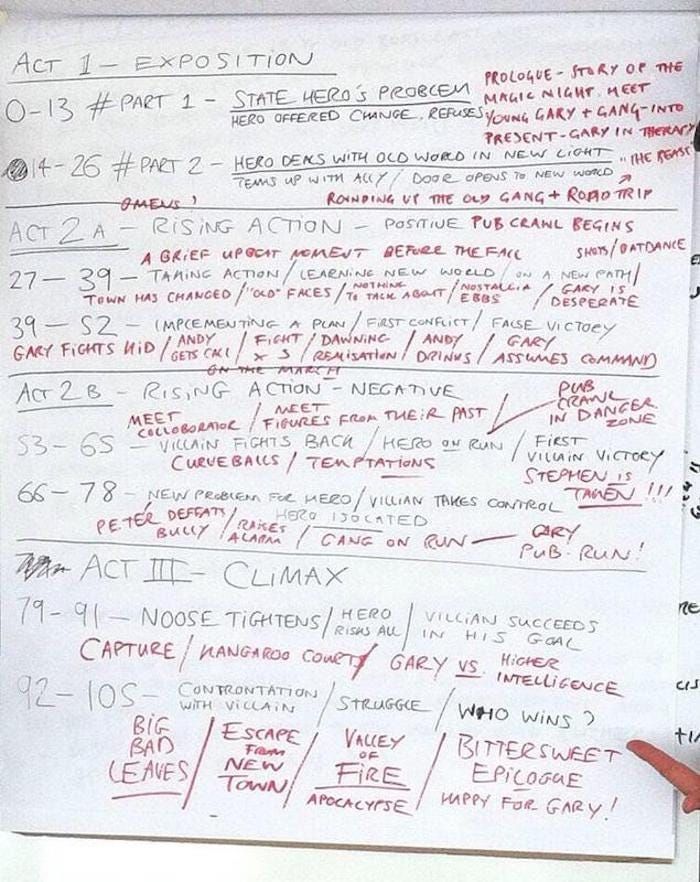 ACT 1 - EXPOSITION
PROLOGUE - STORY OF THE
MAGIC NIGHT. MEET
YOUNG GARY + GANG - INTO
PRESENT - GARY IN THERAPY
0-13 # PART 1 - STATE HERO'S PROBLEM
HERO OFFERED CHANGE, REFUSES
14-26 # PART 2 - HERO DEALS WITH OLD WORLD IN NEW LIGHT
TEAMS UP WITH ALLY / DOOR OPENS TO NEW WORLD
OMENS?
ROUNDING UP THE OLD GANG + ROAD TRIP
ACT 2A - RISING ACTION - POSITIVE PUB CRAWL BEGINS
A BRIEF UPBEAT MOMENT BEFORE THE FALL
SHOTS / BATDANCE
27 - 39 - TAKING ACTION / LEARNING NEW WORLD / ON A NEW PATH /
TOWN HAS CHANGED / "OLD" FACES / NOTHING TO TALK ABOUT / NOSTALGIA EBBS / GARY IS DESPERATE
39 - 52 - IMPLEMENTING A PLAN / FIRST CONFLICT / FALSE VICTORY
GARY FIGHTS KID / ANDY GETS CALL / FIGHT X 5 / DAWNING REALISATION / ANDY DRINKS / GARY ASSUMES COMMAND
ON THE MARCH
ACT 2B - RISING ACTION - NEGATIVE
PUB
CRAWL
IN DANGER
ZONE
MEET COLLOBORATOR / MEET FIGURES FROM THEIR PAST /
53 - 65 - VILLAIN FIGHTS BACK / HERO ON RUN / FIRST VILLAIN VICTORY
CURVEBALLS / TEMPTATIONS
STEPHEN IS
TAKEN !!!
66 - 78 - NEW PROBLEM FOR HERO / VILLIAN TAKES CONTROL
HERO ISOLATED
PETER DEFEATS BULLY / RAISES ALARM / GANG ON RUN - GARY PUB-RUN!
ACT III - CLIMAX
79 - 91 - NOOSE TIGHTENS / HERO RISKS ALL / VILLIAN SUCCEEDS IN HIS GOAL
CAPTURE / KANGAROO COURT / GARY VS. HIGHER INTELLIGENCE
92 - 105 - CONFRONTATION WITH VILLAIN / STRUGGLE / WHO WINS?
BIG BAD LEAVES / ESCAPE FROM NEW TOWN / VALLEY OF FIRE APOCALYPSE / BITTERSWEET EPILOGUE HAPPY FOR GARY!